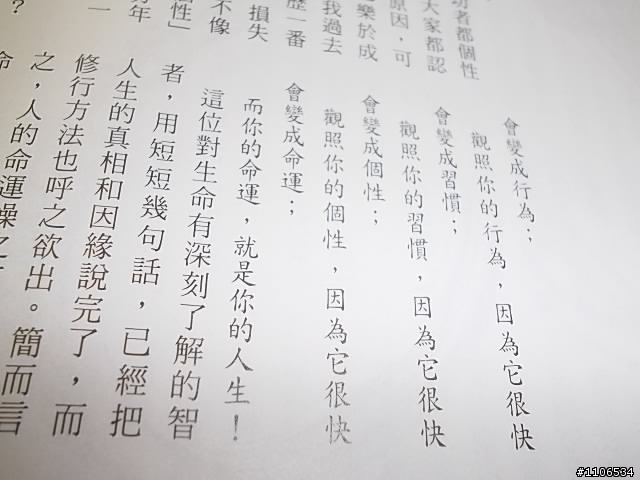 功者都個性
大家都認
原因，可
樂於成
我過去
歷一番
損失
不像
性」
年
一
？
會變成行為；
觀照你的行為，因為它很快
會變成習慣；
觀照你的習慣，因為它很快
會變成個性；
觀照你的個性，因為它很快
會變成命運；
而你的命運，就是你的人生！
這位對生命有深刻了解的智
者，用短短幾句話，已經把
人生的真相和因緣說完了，而
修行方法也呼之欲出。簡而言
之，人的命運操之
命
#1106534